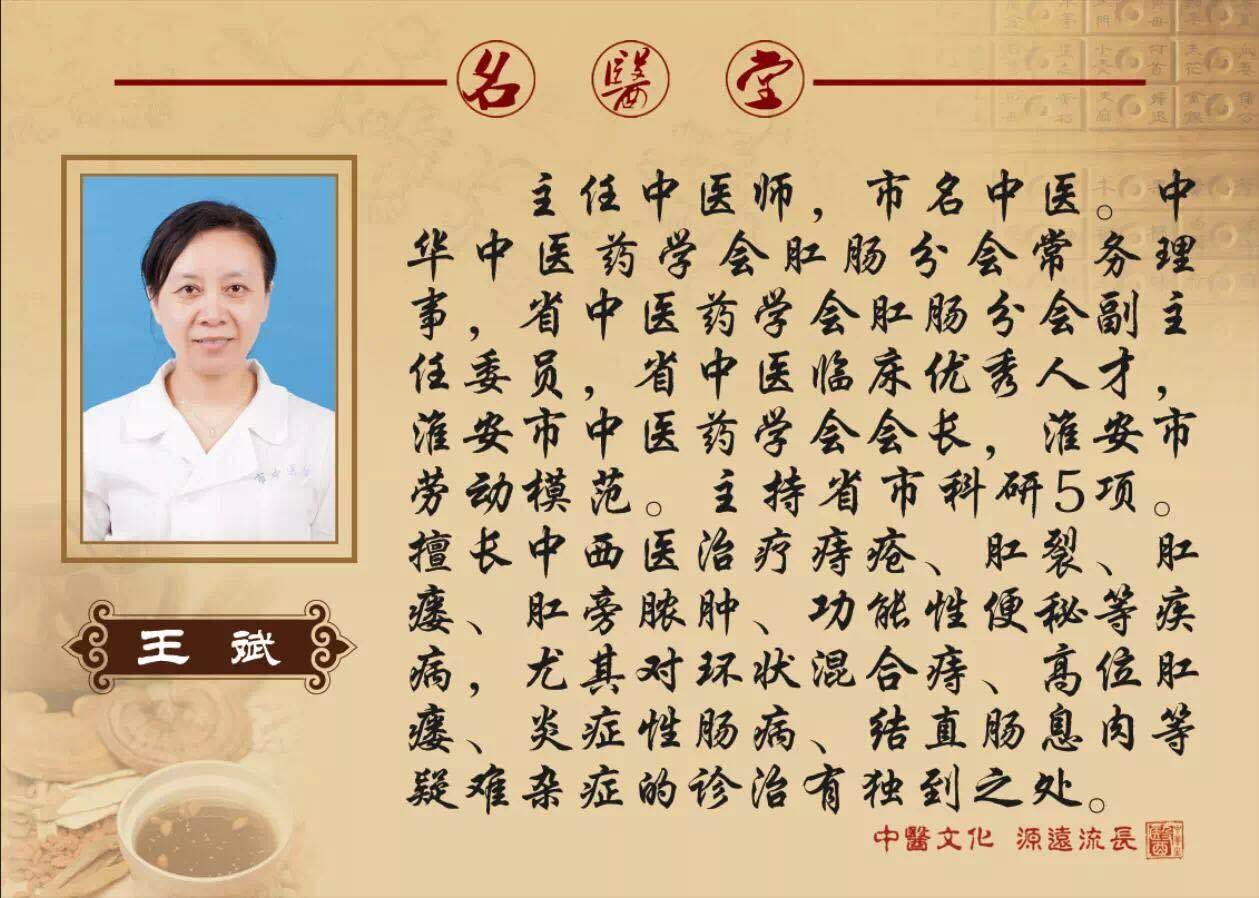 名醫堂
主任中医师，市名中医。中
华中医药学会肛肠分会常务理
事，省中医药学会肛肠分会副主
任委员，省中医临床优秀人才，
淮安市中医药学会会长，淮安市
劳动模范。主持省市科研5项。
擅长中西医治疗痔疮、肛裂、肛
瘘、肛旁脓肿、功能性便秘等疾
病，尤其对环状混合痔、高位肛
瘘、炎症性肠病、结直肠息肉等
疑难杂症的诊治有独到之处。
王斌
中醫文化 源遠流長